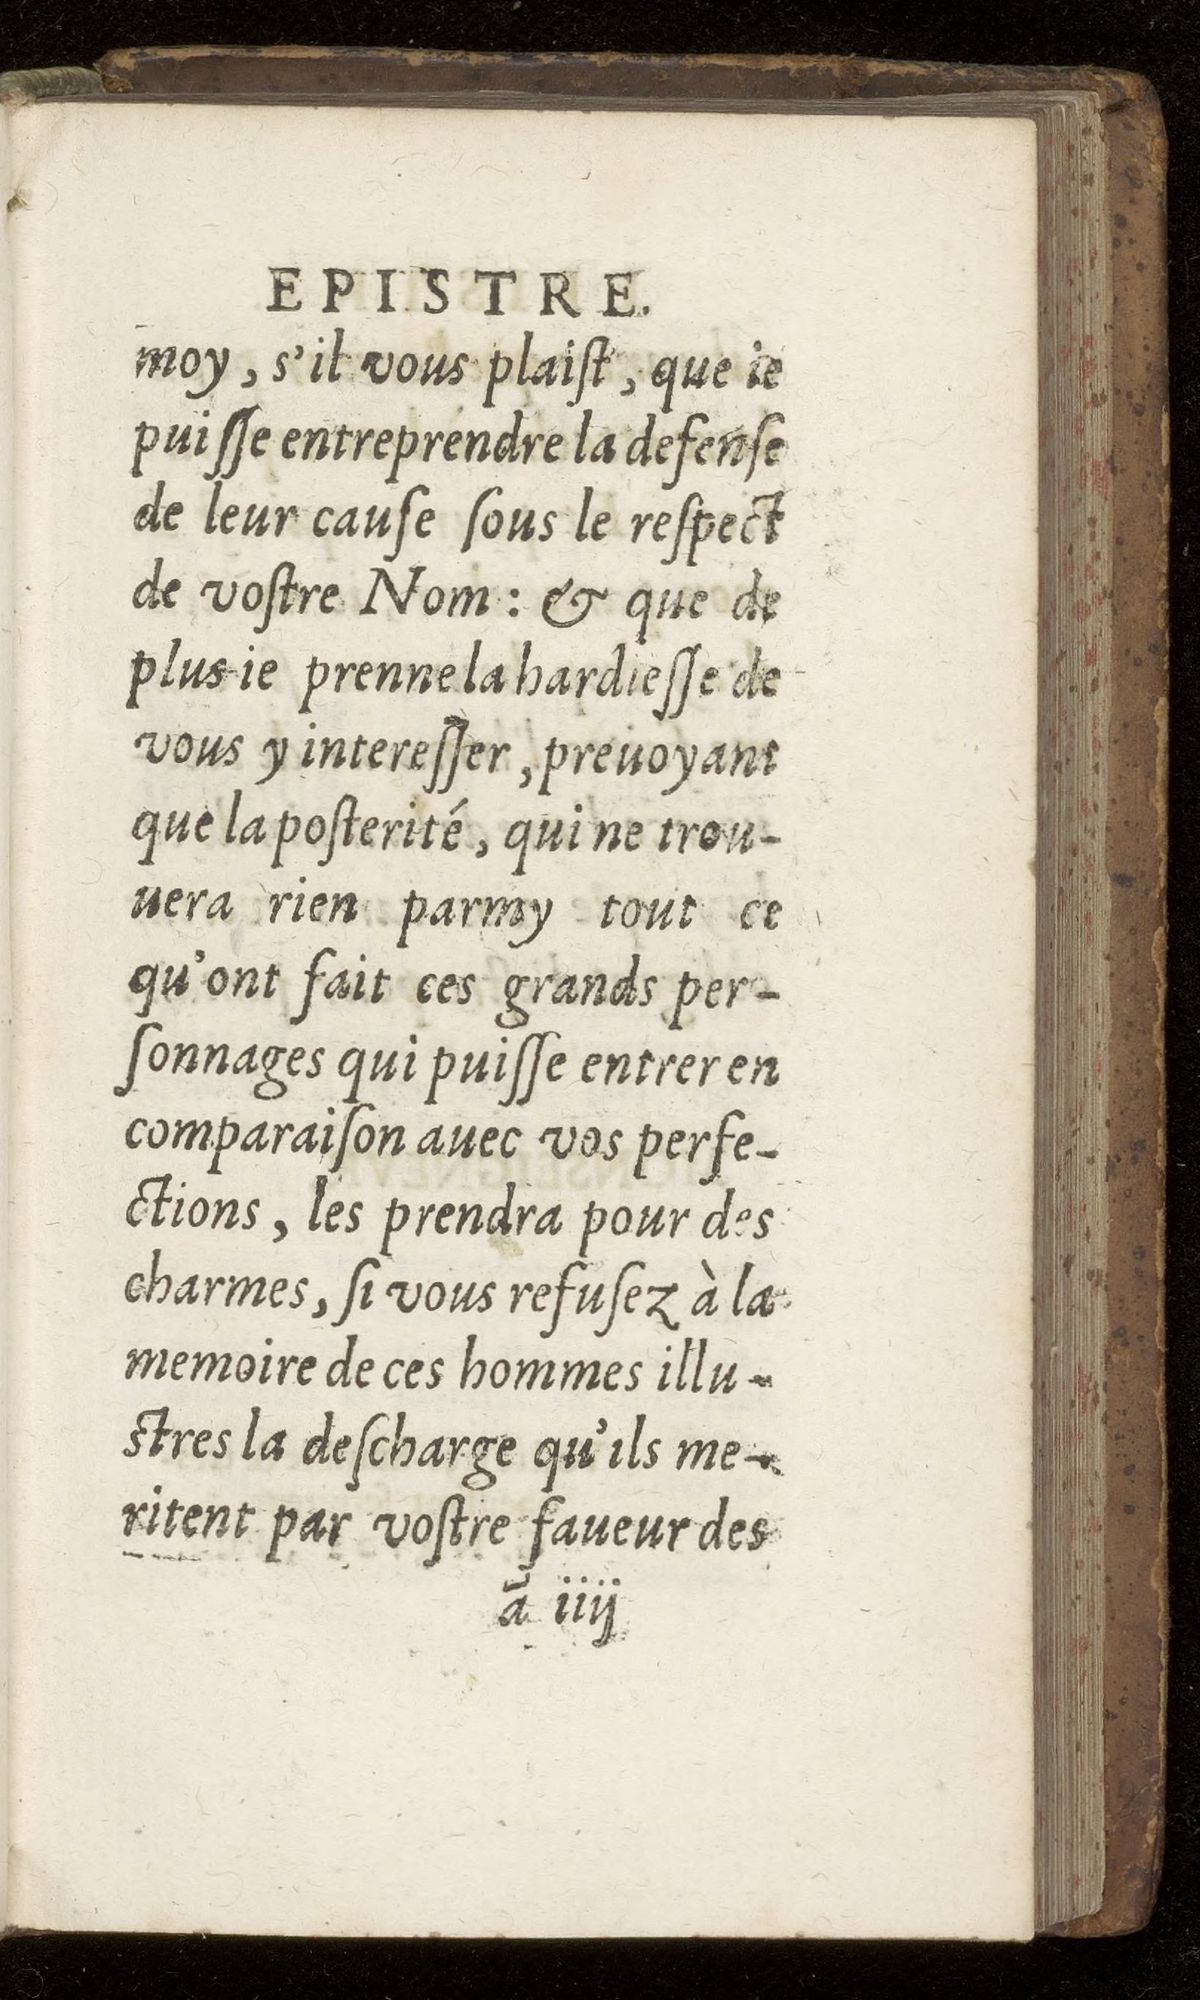 EPISTRE.
moy, s'il vous plaiſt, que ie
puiſſe entreprendre la defenſe
de leur cauſe ſous le reſpect
de voſtre Nom : & que de
plus ie prenne la hardieſſe de
vous y intereſſer, preuoyant
que la poſterité, qui ne trou-
uera rien parmy tout ce
qu'ont fait ces grands per-
ſonnages qui puiſſe entrer en
comparaiſon auec vos perfe-
ctions, les prendra pour des
charmes, ſi vous refuſez à la
memoire de ces hommes illu-
ſtres la deſcharge qu'ils me-
ritent par voſtre faueur des
ã iiij